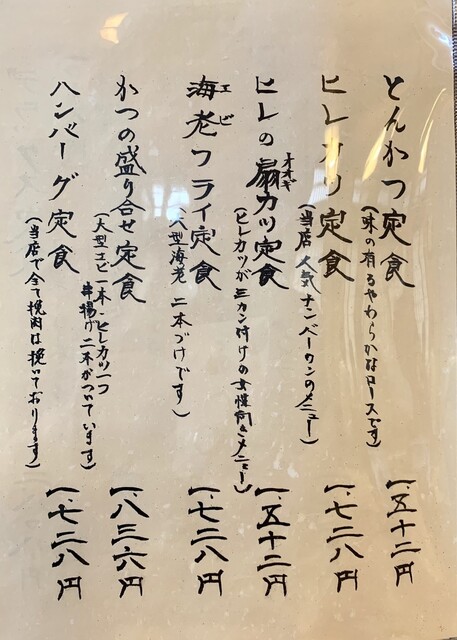 とんかつ定食
(味の有るやわらかなロースです)
一、五十二円
ヒレカツ定食
(当店人気ナンバーワンのメニュー)
一、七二八円
ヒレの扇カツ定食
オオギ
(ヒレカツが三カン付けの女性向きメニュー)
一、五十二円
海老フライ定食
エビ
(大型海老二本づけです)
一、七二八円
かつの盛り合せ定食
(大型エビ一本・ヒレカツ一つ
串揚げ二本がついています)
一、八三六円
ハンバーグ定食
(当店で全て挽肉は挽いております)
一、七二八円